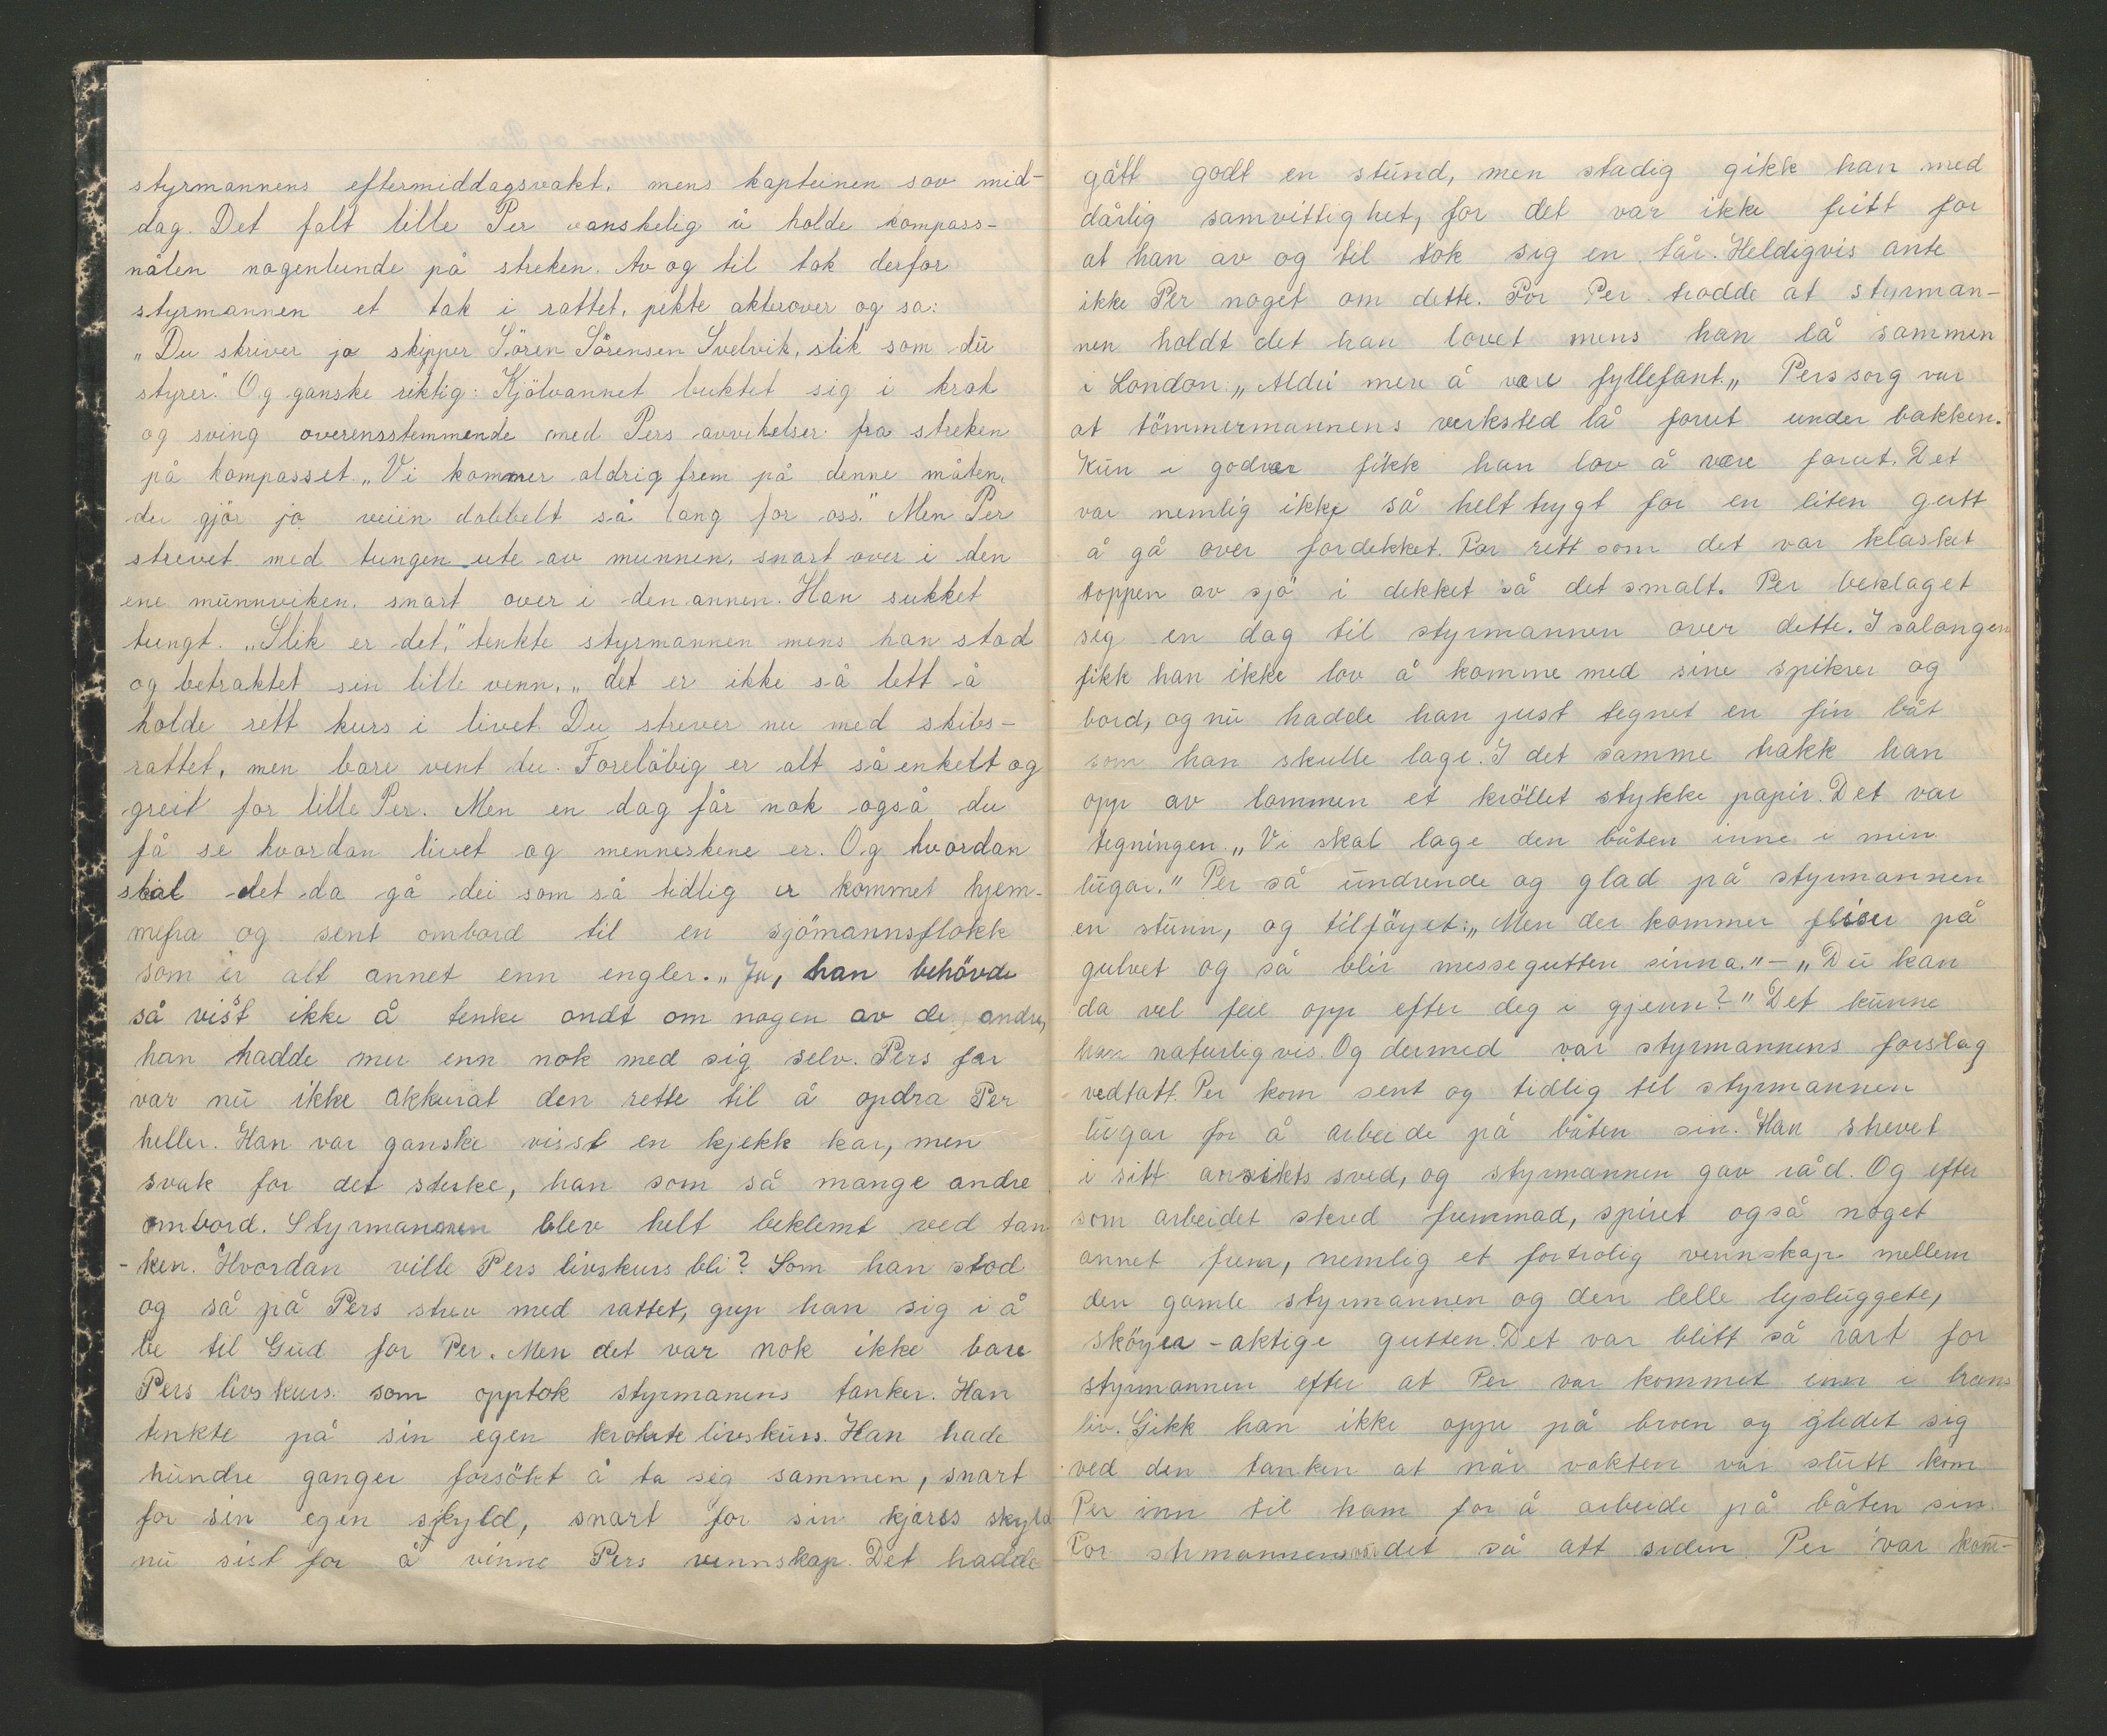 styrmannens eftermiddagsvakt, mens kapteinen sov mid-
dag. Det falt lille Per vanskelig å holde kompass-
nålen nogenlunde på streken. Av og til tok derfor
styrmannen et tak i rattet, pekte akterover og sa:
„Du skriver jo skipper Sören Sörensen Svelvik, slik som du
styrer." Og ganske riktig: Kjölvannet buktet sig i krok
og sving overensstemmende med Pers avvikelser fra streken
på kompasset. „Vi kommer aldrig frem på denne måten,
du gjör jo veiin dobbelt så lang for oss." Men Per
strevet med tungen ute av munnen, snart over i den
ene munnviken, snart over i den annen. Han sukket
tungt. „Slik er det," tenkte styrmannen mens han stod
og betraktet sin lille venn, „det er ikke så lett å
holde rett kurs i livet. Du strever nu med skibs-
rattet, men bare vent du. Forelöbig er alt så enkelt og
greit for lille Per. Men en dag får nok også du
få se hvordan livet og menneskene er. Og hvordan
skal det da gå dei som så tidlig er kommet hjem-
mefra og sent ombord til en sjömannsflokk
som er alt annet enn engler. „Ja, han behövde
så visst ikke å tenke ondt om nogen av de andre,
han hadde mer enn nok med sig selv. Pers far
var nu ikke akkurat den rette til å opdra Per
heller. Han var ganske visst en kjekk kar, men
svak for det sterke, han som så mange andre
ombord. Styrmannen blev helt beklemt ved tan
-ken. Hvordan ville Pers livskurs bli? Som han stod
og så på Pers strev med rattet, grep han sig i å
be til Gud for Per. Men det var nok ikke bare
Pers livskurs som opptok styrmanens tanker. Han
tenkte på sin egen krokete livskurs. Han hade
hundre ganger forsökt å ta sig sammen, snart
for sin egen skyld, snart for sin kjæres skyld
nu sist for å vinne Pers vennskap. Det hadde
gått godt en stund, men stadig gikk han med
dårlig samvittighet, for det var ikke fritt for
at han av og til tok sig en tår. Heldigvis ante
ikke Per noget om dette. For Per trodde at styrman-
nen holdt det han lovet mens han lå sammen
i London. „Aldri mere å være fyllefant.„ Pers sorg var
at tömmermannens verksted lå forut under bakken.
Kun i godvær fikk han lov å være forut. Det
var nemlig ikke så helt trygt for en liten gutt
å gå over fordekket. For rett som det var klasket
toppen av sjö i dekket så det smalt. Per beklaget
sig en dag til styrmannen over dette. I salongen
fikk han ikke lov å komme med sine spikrer og
bord, og nu hadde han just tegnet en fin båt
som han skulle lage. I det samme trakk han
opp av lommen et kröllet stykke papir. Det var
tegningen. „Vi skal lage den båten inne i min
lugar." Per så undrende og glad på styrmannen
en stunn, og tilföyet: „Men der kommer fliser på
gulvet og så blir messegutten sinna." - „Du kan
da vel feie opp efter deg i gjenn?" Det kunne
han naturligvis. Og dermed var styrmannens forslag
vedtatt. Per kom sent og tidlig til styrmannen
lugar for å arbeide på båten sin. Han strevet
i sitt ansikts sved, og styrmannen gav råd. Og efter
som arbeidet skred fremmad, spiret også noget
annet frem, nemlig et fortrolig vennskap mellem
den gamle styrmannen og den lelle lysluggete,
sköyer-aktige gutten. Det var blitt så rart for
styrmannen efter at Per var kommet inn i hans
liv. Gikk han ikke oppe på broen og gledet sig
ved den tanken at når vakten var slutt kom
Per inn til ham for å arbeide på båten sin.
For strmannen var det så att siden Per var kom-